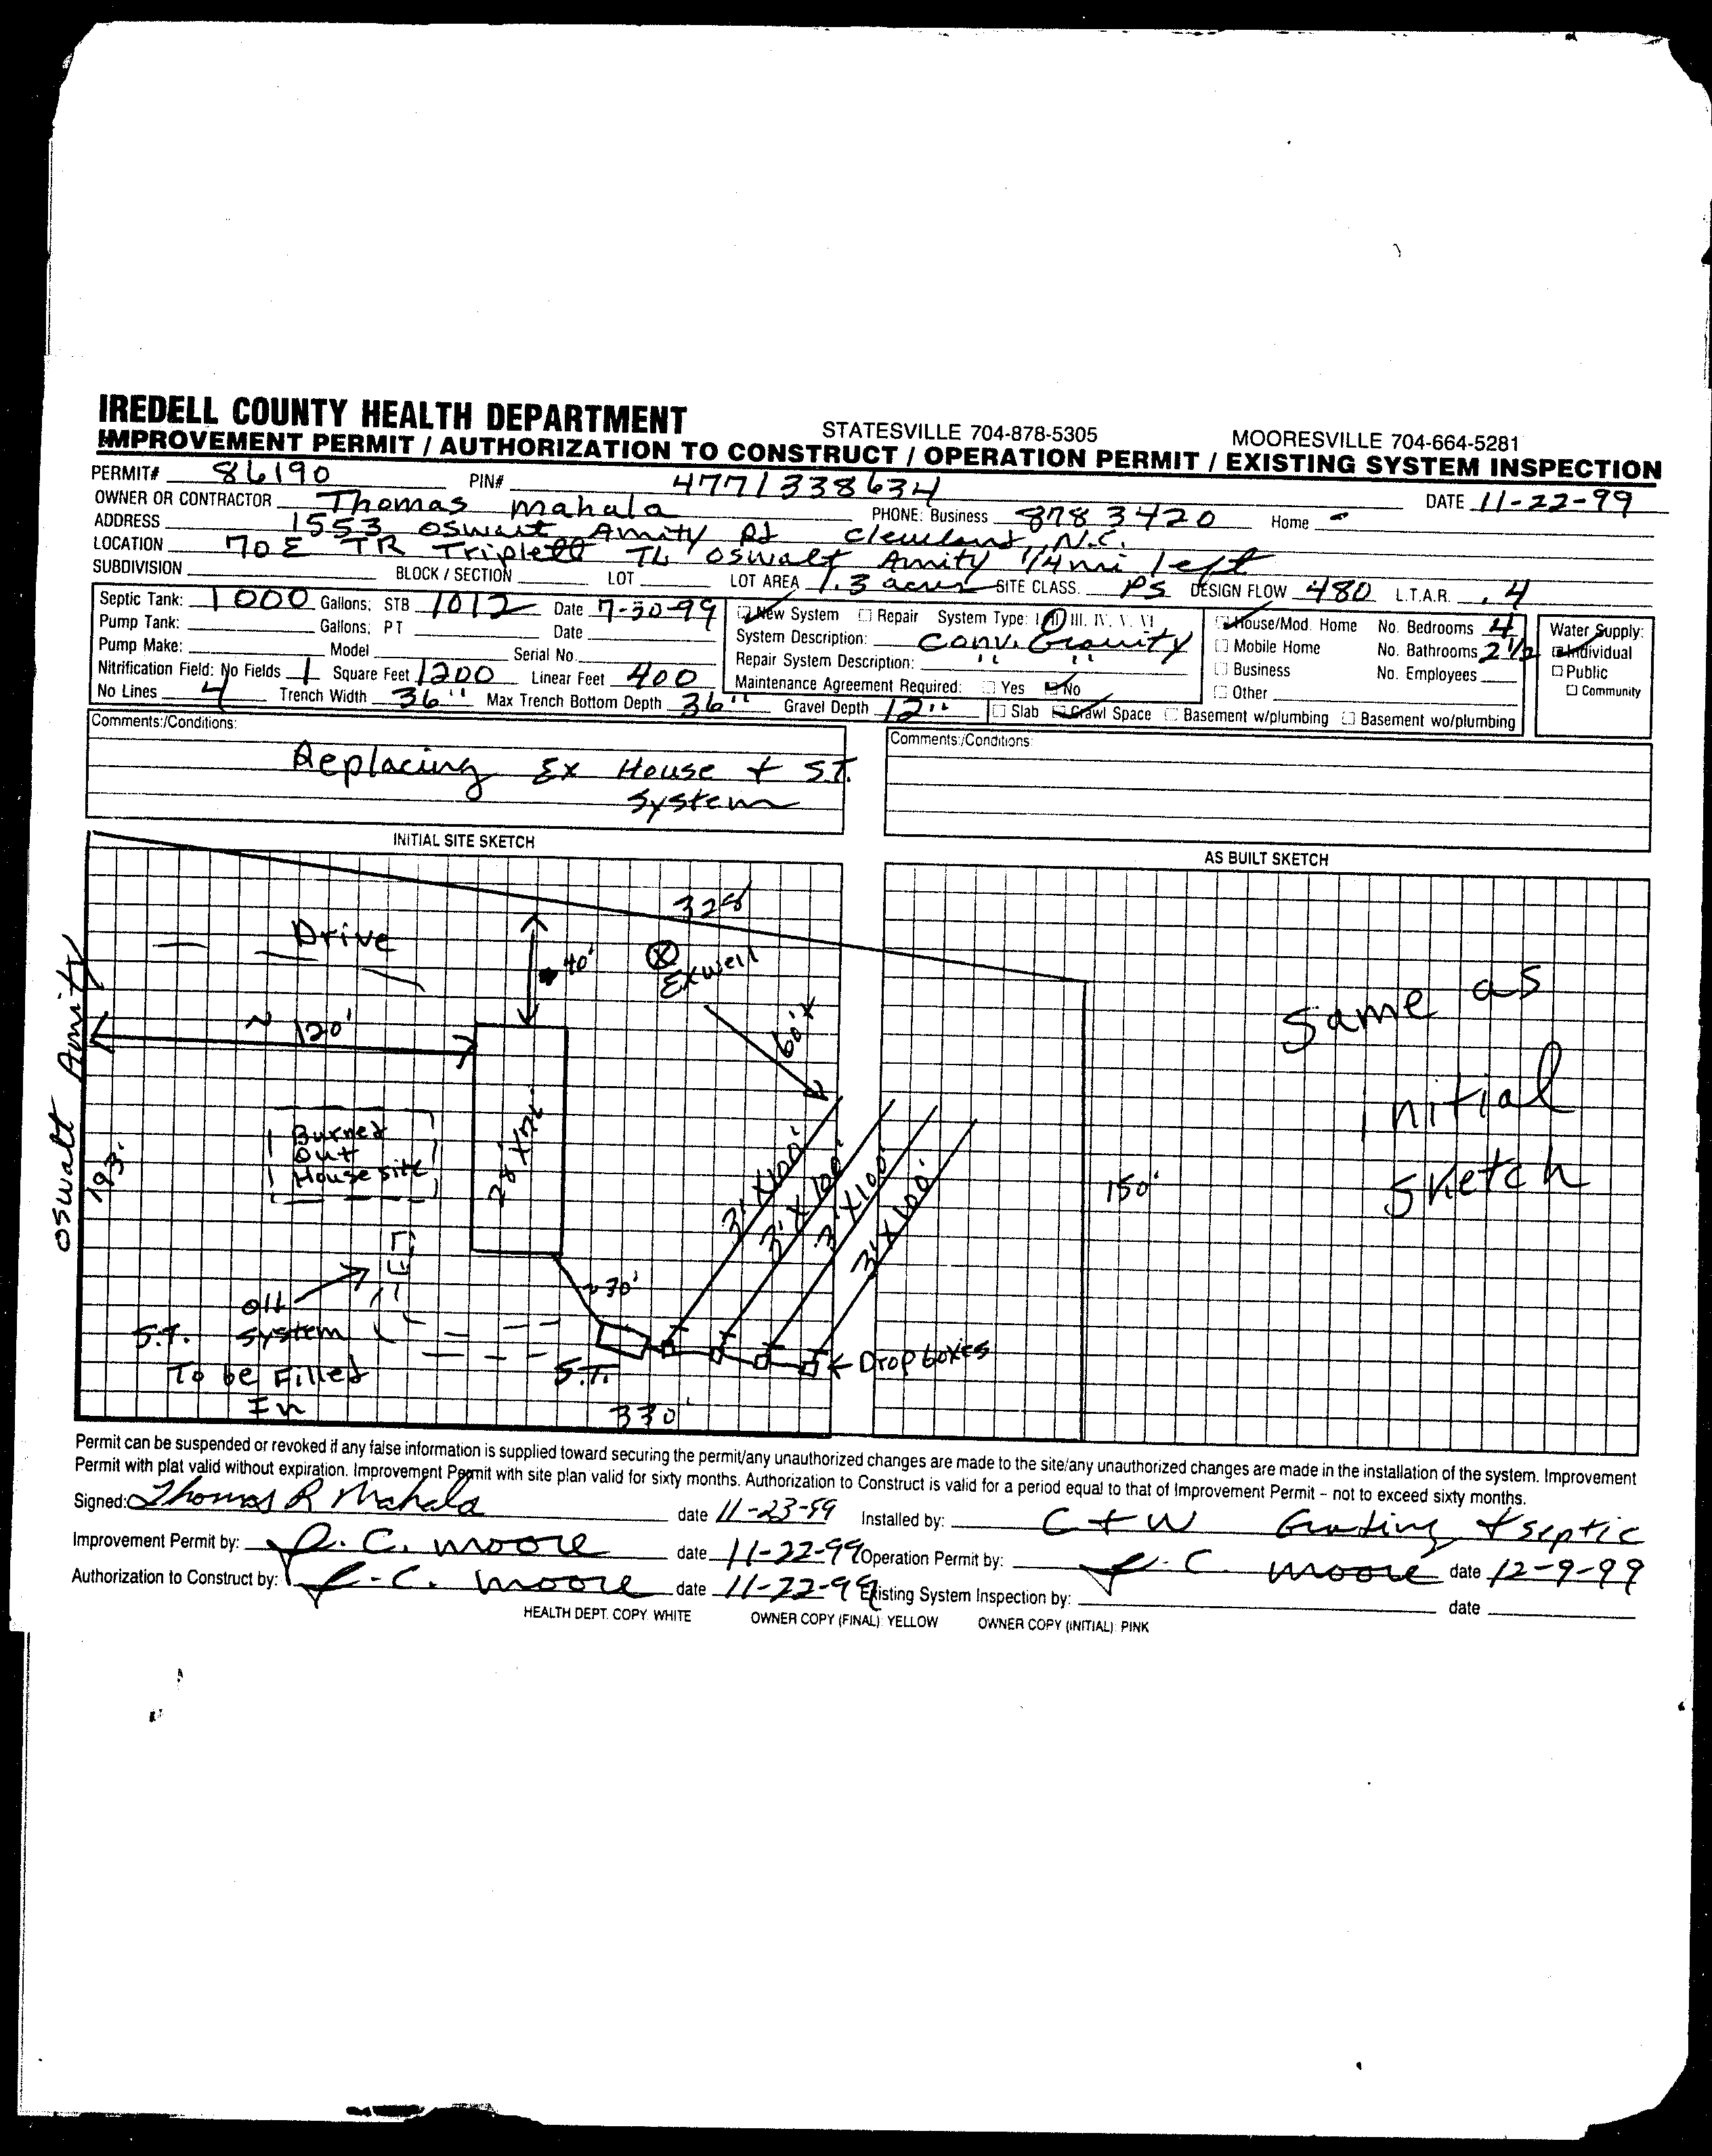 IREDELL COUNTY HEALTH DEPARTMENT
STATESVILLE 704-878-5305 MOORESVILLE 704-664-5281
IMPROVEMENT PERMIT / AUTHORIZATION TO CONSTRUCT / OPERATION PERMIT / EXISTING SYSTEM INSPECTION
PERMIT# 86190 PIN# 4771338634 DATE 11-22-99
OWNER OR CONTRACTOR Thomas Mahala PHONE: Business 878 3420 Home -
ADDRESS 1553 Oswalt Amity Rd Cleveland, N.C.
LOCATION 70 E TR Triplett TL Oswalt Amity 1/4 mi left
SUBDIVISION BLOCK / SECTION LOT LOT AREA 1.3 acres SITE CLASS. PS DESIGN FLOW 480 L.T.A.R. .4
Septic Tank: 1000 Gallons; STB 1012 Date 7-30-99 New System Repair System Type: I II III. IV. V. VI House/Mod. Home No. Bedrooms 4 Water Supply:
Pump Tank: Gallons; PT Date System Description: Conv. Gravity Mobile Home No. Bathrooms 2 1/2 Individual
Pump Make: Model Serial No. Repair System Description: " " Business No. Employees Public
Nitrification Field: No Fields 1 Square Feet 1200 Linear Feet 400 Maintenance Agreement Required: Yes No Other Community
No Lines 4 Trench Width 36" Max Trench Bottom Depth 36" Gravel Depth 12" Slab Crawl Space Basement w/plumbing Basement wo/plumbing
Comments:/Conditions: Comments:/Conditions:
Replacing Ex House + S.T.
System
INITIAL SITE SKETCH AS BUILT SKETCH
328
Drive
40'
Ex well
~ 120'
60'+
Oswalt Amity
193'
Burned
Out
House site
3'X100'
3'X100'
3'X100'
3'X100'
150'
Same as
initial
sketch
~30'
Old
S.T. System
To be Filled
In
S.T.
Drop boxes
330'
Permit can be suspended or revoked if any false information is supplied toward securing the permit/any unauthorized changes are made to the site/any unauthorized changes are made in the installation of the system. Improvement
Permit with plat valid without expiration. Improvement Permit with site plan valid for sixty months. Authorization to Construct is valid for a period equal to that of Improvement Permit – not to exceed sixty months.
Signed: Thomas R Mahala date 11-23-99 Installed by: C + W Grading + Septic
Improvement Permit by: R. C. Moore date 11-22-99 Operation Permit by: R. C. Moore date 12-9-99
Authorization to Construct by: R. C. Moore date 11-22-99 Existing System Inspection by: date
HEALTH DEPT. COPY: WHITE OWNER COPY (FINAL): YELLOW OWNER COPY (INITIAL): PINK